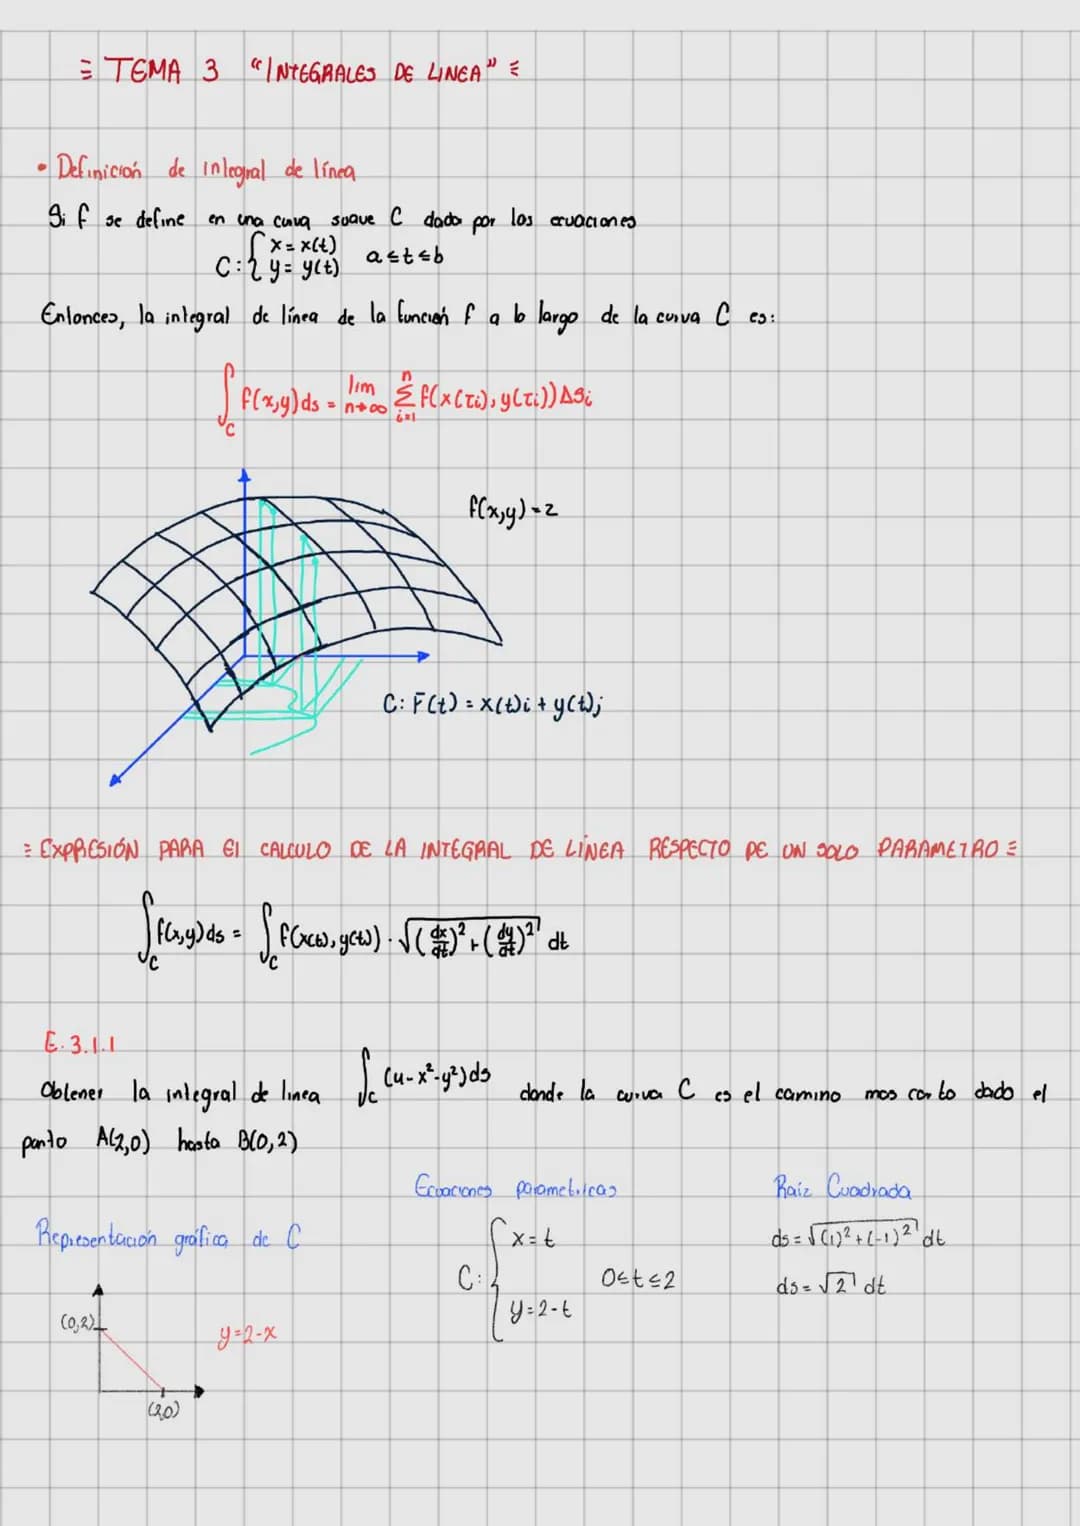 ≡ TEMA 3 "INTEGRALES DE LINEA" ≡
• Definición de integral de línea
Si f se define en una curva suave C dada por las ecuaciones
C: { x = x(t) a ≤ t ≤ b
y = y(t)
Entonces, la integral de línea de la función f a lo largo de la curva C es:
∫_C f(x,y) ds = lim_{n→∞} Σ_{i=1}^{n} f(x(τi), y(τi)) Δsi
f(x,y) = z
C: r̄(t) = x(t)i + y(t)j
≡ EXPRESIÓN PARA El CALCULO DE LA INTEGRAL DE LÍNEA RESPECTO DE UN SOLO PARAMETRO ≡
∫_C f(x,y) ds = ∫_C f(x(t), y(t)) · √((dx/dt)² + (dy/dt)²) dt
E. 3.1.1
Obtener la integral de linea ∫_C (4-x²-y²) ds donde la curva C es el camino mas corto dado el
punto A(2,0) hasta B(0,2)
Representación gráfica de C
(0,2)
y=2-x
(2,0)
Ecuaciones parametricas
C: { x = t
0 ≤ t ≤ 2
y = 2-t
Raíz Cuadrada
ds = √((1)² + (-1)²) dt
ds = √2 dt